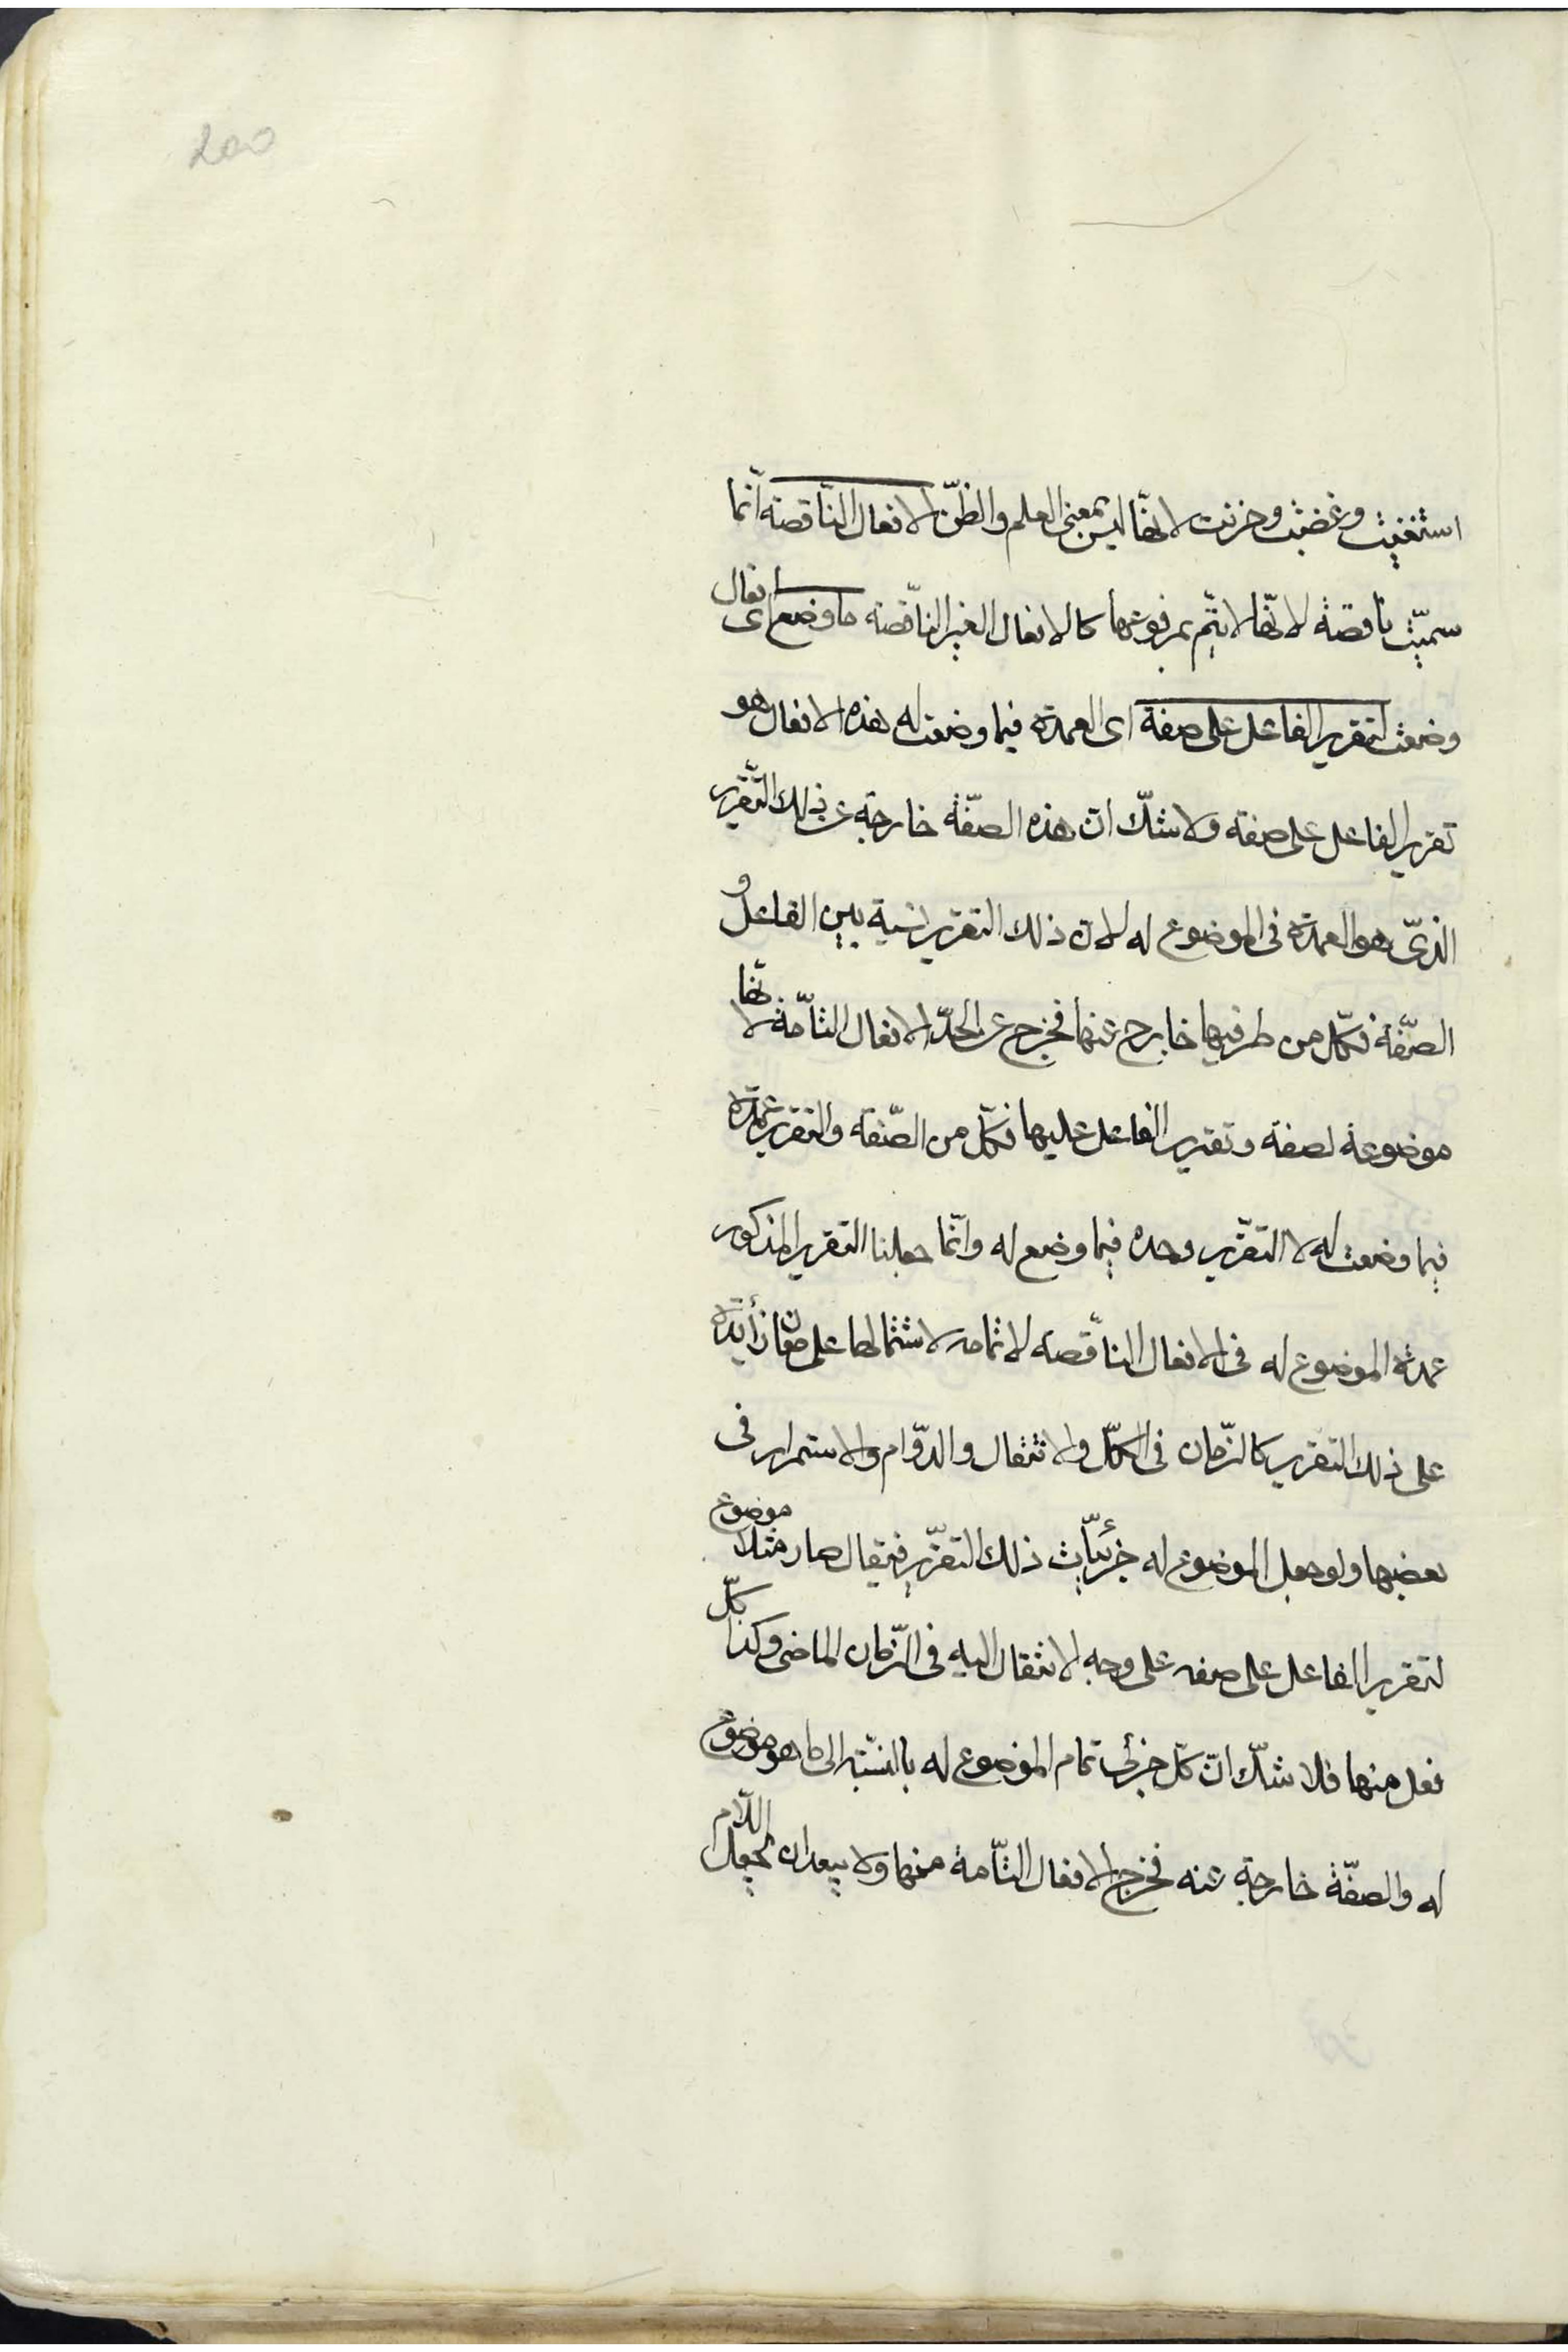 200
استغنيت وغضبت وحزنت لانها ليس بمعنى العلم والظنّ الافعال النّاقصة انّما
سميّت ناقصة لانّها لا يتّم بمرفوعها كالافعال الغير النّاقصة ما وضع اى افعال
وضعت لتقرير الفاعل على صفة اى العمدة فيما وضعت له هذه الافعال هو
تقرير الفاعل على صفة ولا شكّ انّ هذه الصّفة خارجة عن ذلك التّقرير
الذّى هو العمدة فى الموضوع له لان ذلك التقرير نسبة بين الفاعل و
الصّفة فكلّ من طرفيها خارج عنها فخرج عن الحدّ الافعال التّامّة لانّها
موضوعة لصفة وتقرير الفاعل عليها فكلّ من الصّفة والتقرير عمدة
فيما وضعت له لا التقرير وحده فيما وضع له وانّما جعلنا التقرير المذكور
عمدة الموضوع له فى الافعال النّاقصة لا تمامه لاشتمالها على معان زائدة
على ذلك التقرير كالزّمان فى الكلّ والانتقال والدّوام والاستمرار فى
بعضها ولو جعل الموضوع له جزئيّات ذلك التقرير فيقال صار مثلا موضوع
لتقرير الفاعل على صفه على وجه الانتقال اليه فى الزّمان الماضى وكذا كلّ
فعل منها فلا شكّ انّ كلّ جزئى تمام الموضوع له بالنسّبة الى ما هو موضوع
له والصفّة خارجة عنه فخرج الافعال التّامة منها ولا يبعد ان يجعل اللّام